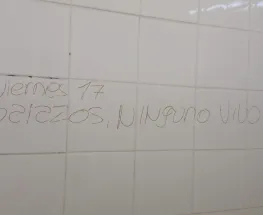 viernes 17
parazos, NINGUNO VIVO